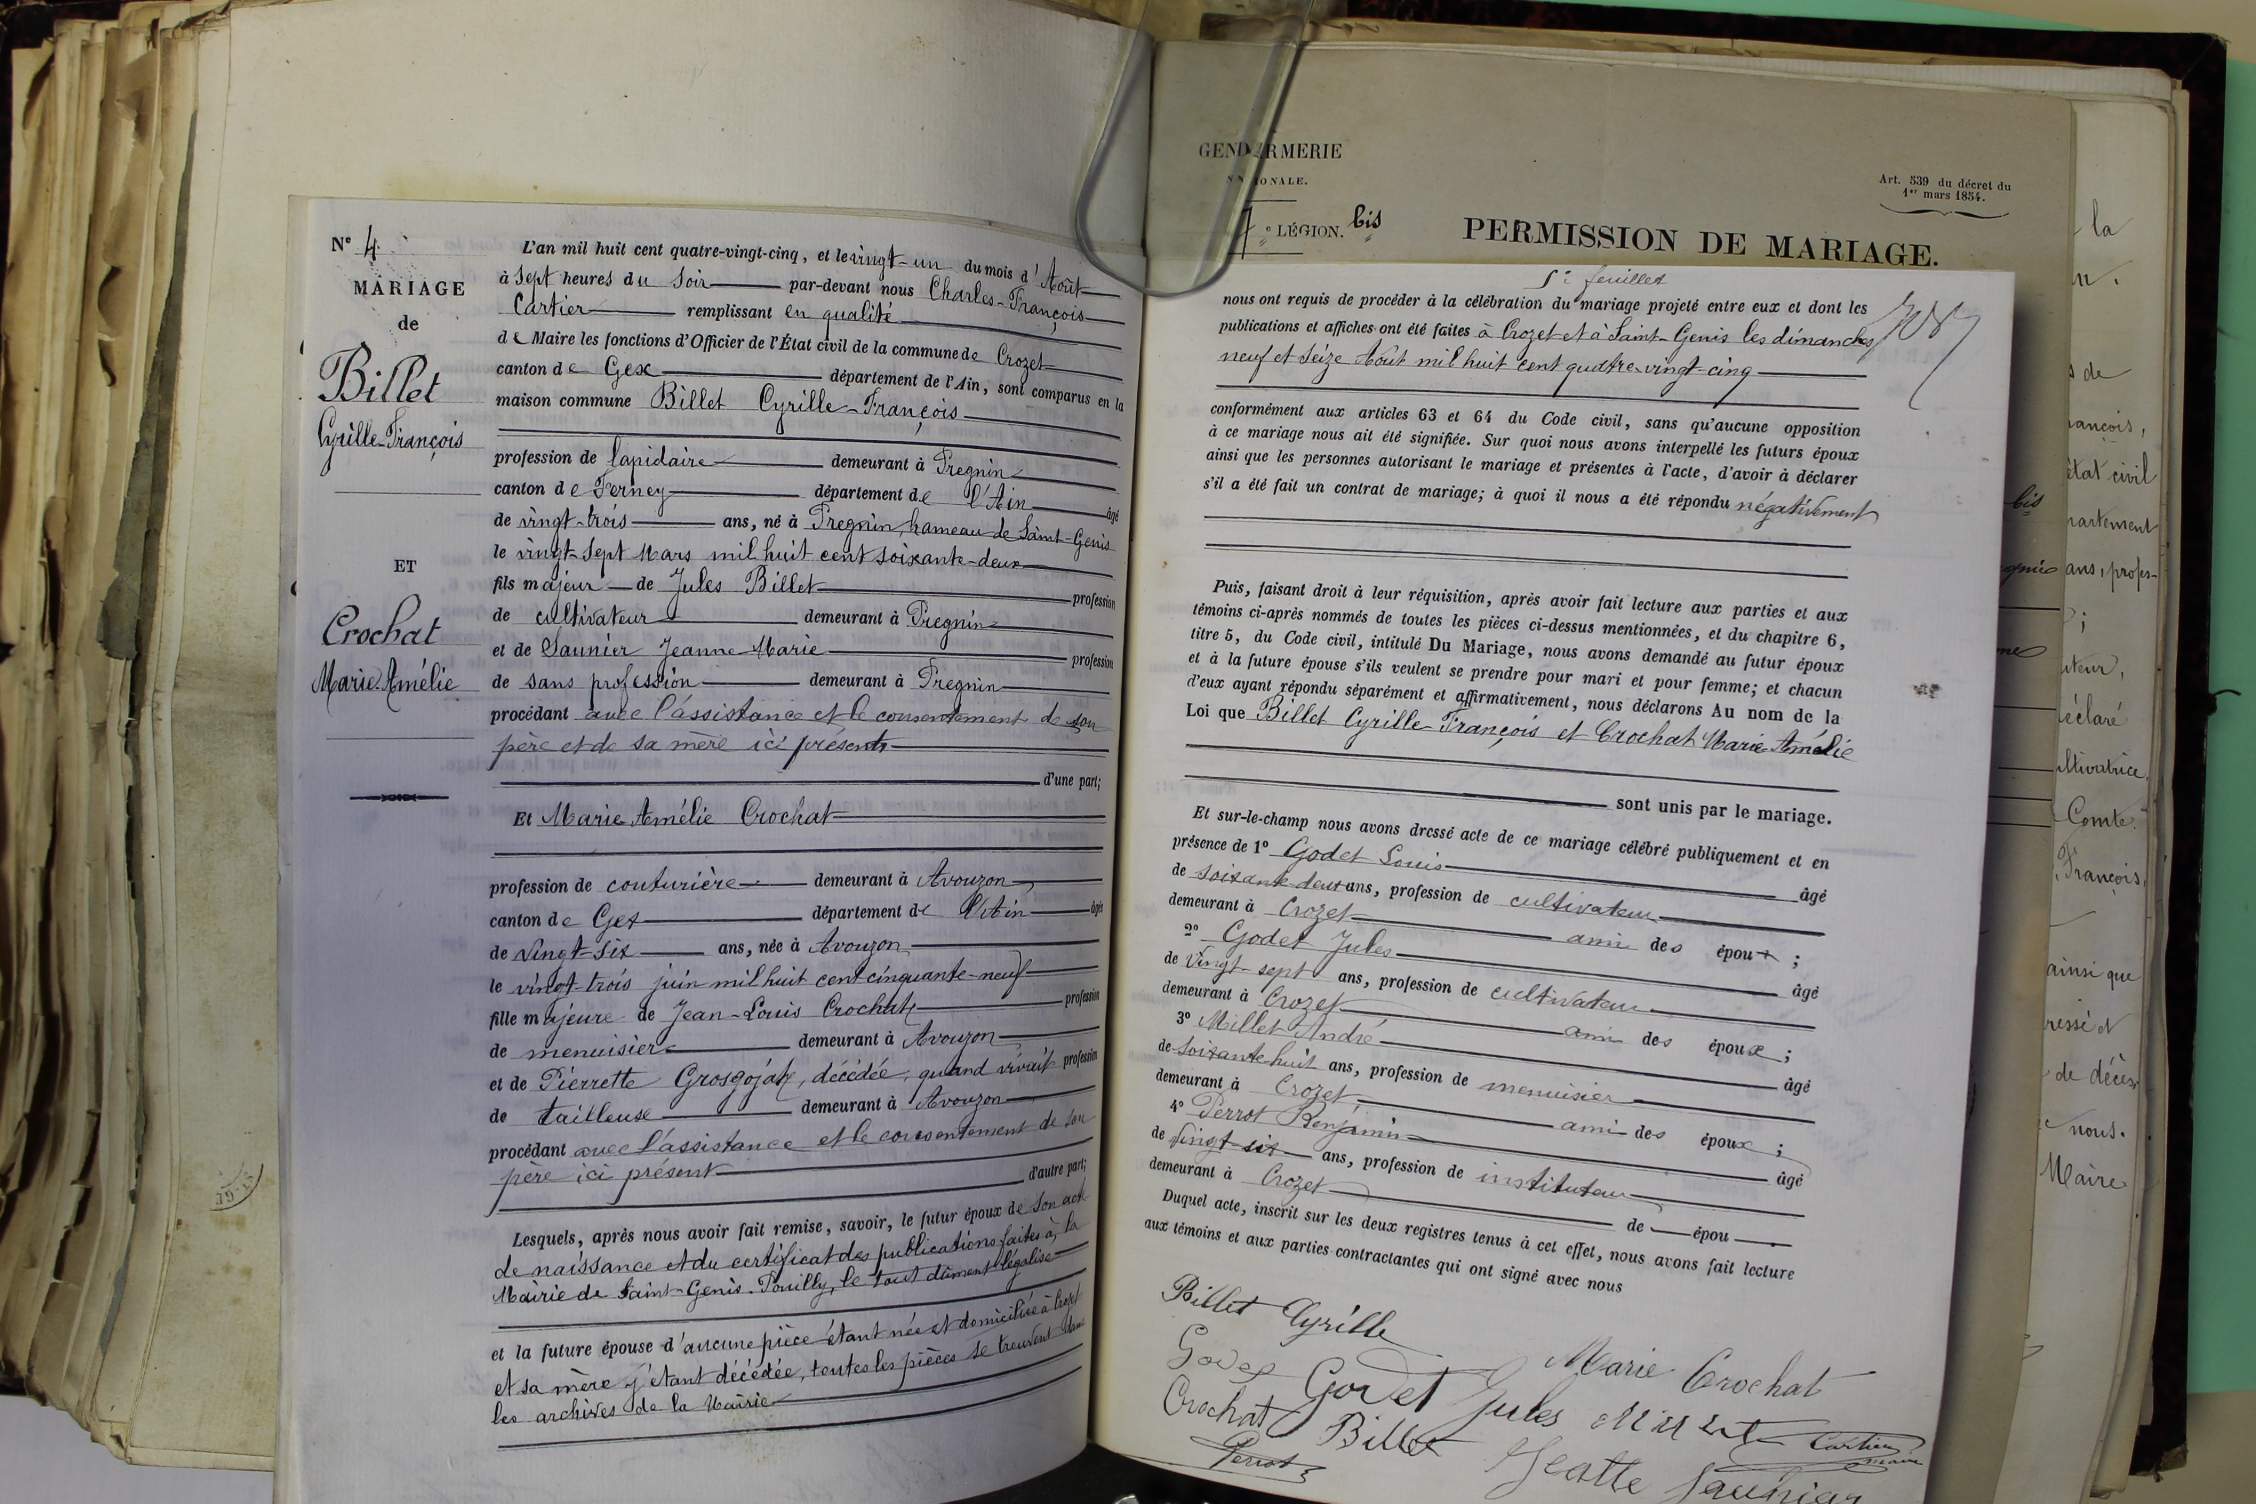 N° 4
MARIAGE
de
Billet
Cyrille-François
ET
Crochat
Marie Amélie
L'an mil huit cent quatre-vingt-cinq, et le vingt-un du mois d'Août
à sept heures du soir par-devant nous Charles-François
Cartier remplissant en qualité
de Maire les fonctions d'Officier de l'État civil de la commune de Crozet
canton de Gex département de l'Ain, sont comparus en la
maison commune Billet Cyrille-François
profession de lapidaire demeurant à Pregnin
canton de Ferney département de l'Ain âgé
de vingt-trois ans, né à Pregnin, hameau de Saint-Genis
le vingt-sept Mars mil huit cent soixante-deux
fils majeur de Jules Billet profession
de cultivateur demeurant à Pregnin
et de Saunier Jeanne-Marie profession
de sans profession demeurant à Pregnin
procédant avec l'assistance et le consentement de son
père et de sa mère ici présents
d'une part;
Et Marie Amélie Crochat
profession de couturière demeurant à Avouzon
canton de Gex département de l'Ain âgée
de vingt-six ans, née à Avouzon
le vingt-trois juin mil huit cent cinquante-neuf
fille majeure de Jean-Louis Crochat profession
de menuisier demeurant à Avouzon
et de Pierrette Grosgojat, décédée, quand vivait profession
de tailleuse demeurant à Avouzon
procédant avec l'assistance et le consentement de son
père ici présent
d'autre part;
Lesquels, après nous avoir fait remise, savoir, le futur époux de son acte
de naissance et du certificat des publications faites à la
Mairie de Saint-Genis-Pouilly, le tout dûment légalisé
et la future épouse d'aucune pièce étant née et domiciliée à Crozet
et sa mère y étant décédée, toutes les pièces se trouvent dans
les archives de la Mairie
GENDARMERIE
NATIONALE.
7e LÉGION. bis
Art. 539 du décret du
1er mars 1854.
PERMISSION DE MARIAGE.
feuillet
nous ont requis de procéder à la célébration du mariage projeté entre eux et dont les
publications et affiches ont été faites à Crozet et à Saint-Genis les dimanches
neuf et seize Août mil huit cent quatre-vingt-cinq
conformément aux articles 63 et 64 du Code civil, sans qu'aucune opposition
à ce mariage nous ait été signifiée. Sur quoi nous avons interpellé les futurs époux
ainsi que les personnes autorisant le mariage et présentes à l'acte, d'avoir à déclarer
s'il a été fait un contrat de mariage; à quoi il nous a été répondu négativement
Puis, faisant droit à leur réquisition, après avoir fait lecture aux parties et aux
témoins ci-après nommés de toutes les pièces ci-dessus mentionnées, et du chapitre 6,
titre 5, du Code civil, intitulé Du Mariage, nous avons demandé au futur époux
et à la future épouse s'ils veulent se prendre pour mari et pour femme; et chacun
d'eux ayant répondu séparément et affirmativement, nous déclarons Au nom de la
Loi que Billet Cyrille-François et Crochat Marie Amélie
sont unis par le mariage.
Et sur-le-champ nous avons dressé acte de ce mariage célébré publiquement et en
présence de 1° Godet Louis âgé
de soixante-deux ans, profession de cultivateur
demeurant à Crozet ami des époux ;
2° Godet Jules âgé
de vingt-sept ans, profession de cultivateur
demeurant à Crozet ami des époux ;
3° Millet André âgé
de soixante huit ans, profession de menuisier
demeurant à Crozet ami des époux ;
4° Perrot Benjamin âgé
de vingt-six ans, profession de instituteur
demeurant à Crozet de épou
Duquel acte, inscrit sur les deux registres tenus à cet effet, nous avons fait lecture
aux témoins et aux parties contractantes qui ont signé avec nous
Billet Cyrille
Marie Crochat
Godet Godet Jules Millet Cartier
maire
Crochat Billet
Perrot
la
de
François,
état civil
partement
ans, profes-
déclaré
cultivatrice,
Comte
François,
ainsi que
de décès,
nous.
Maire